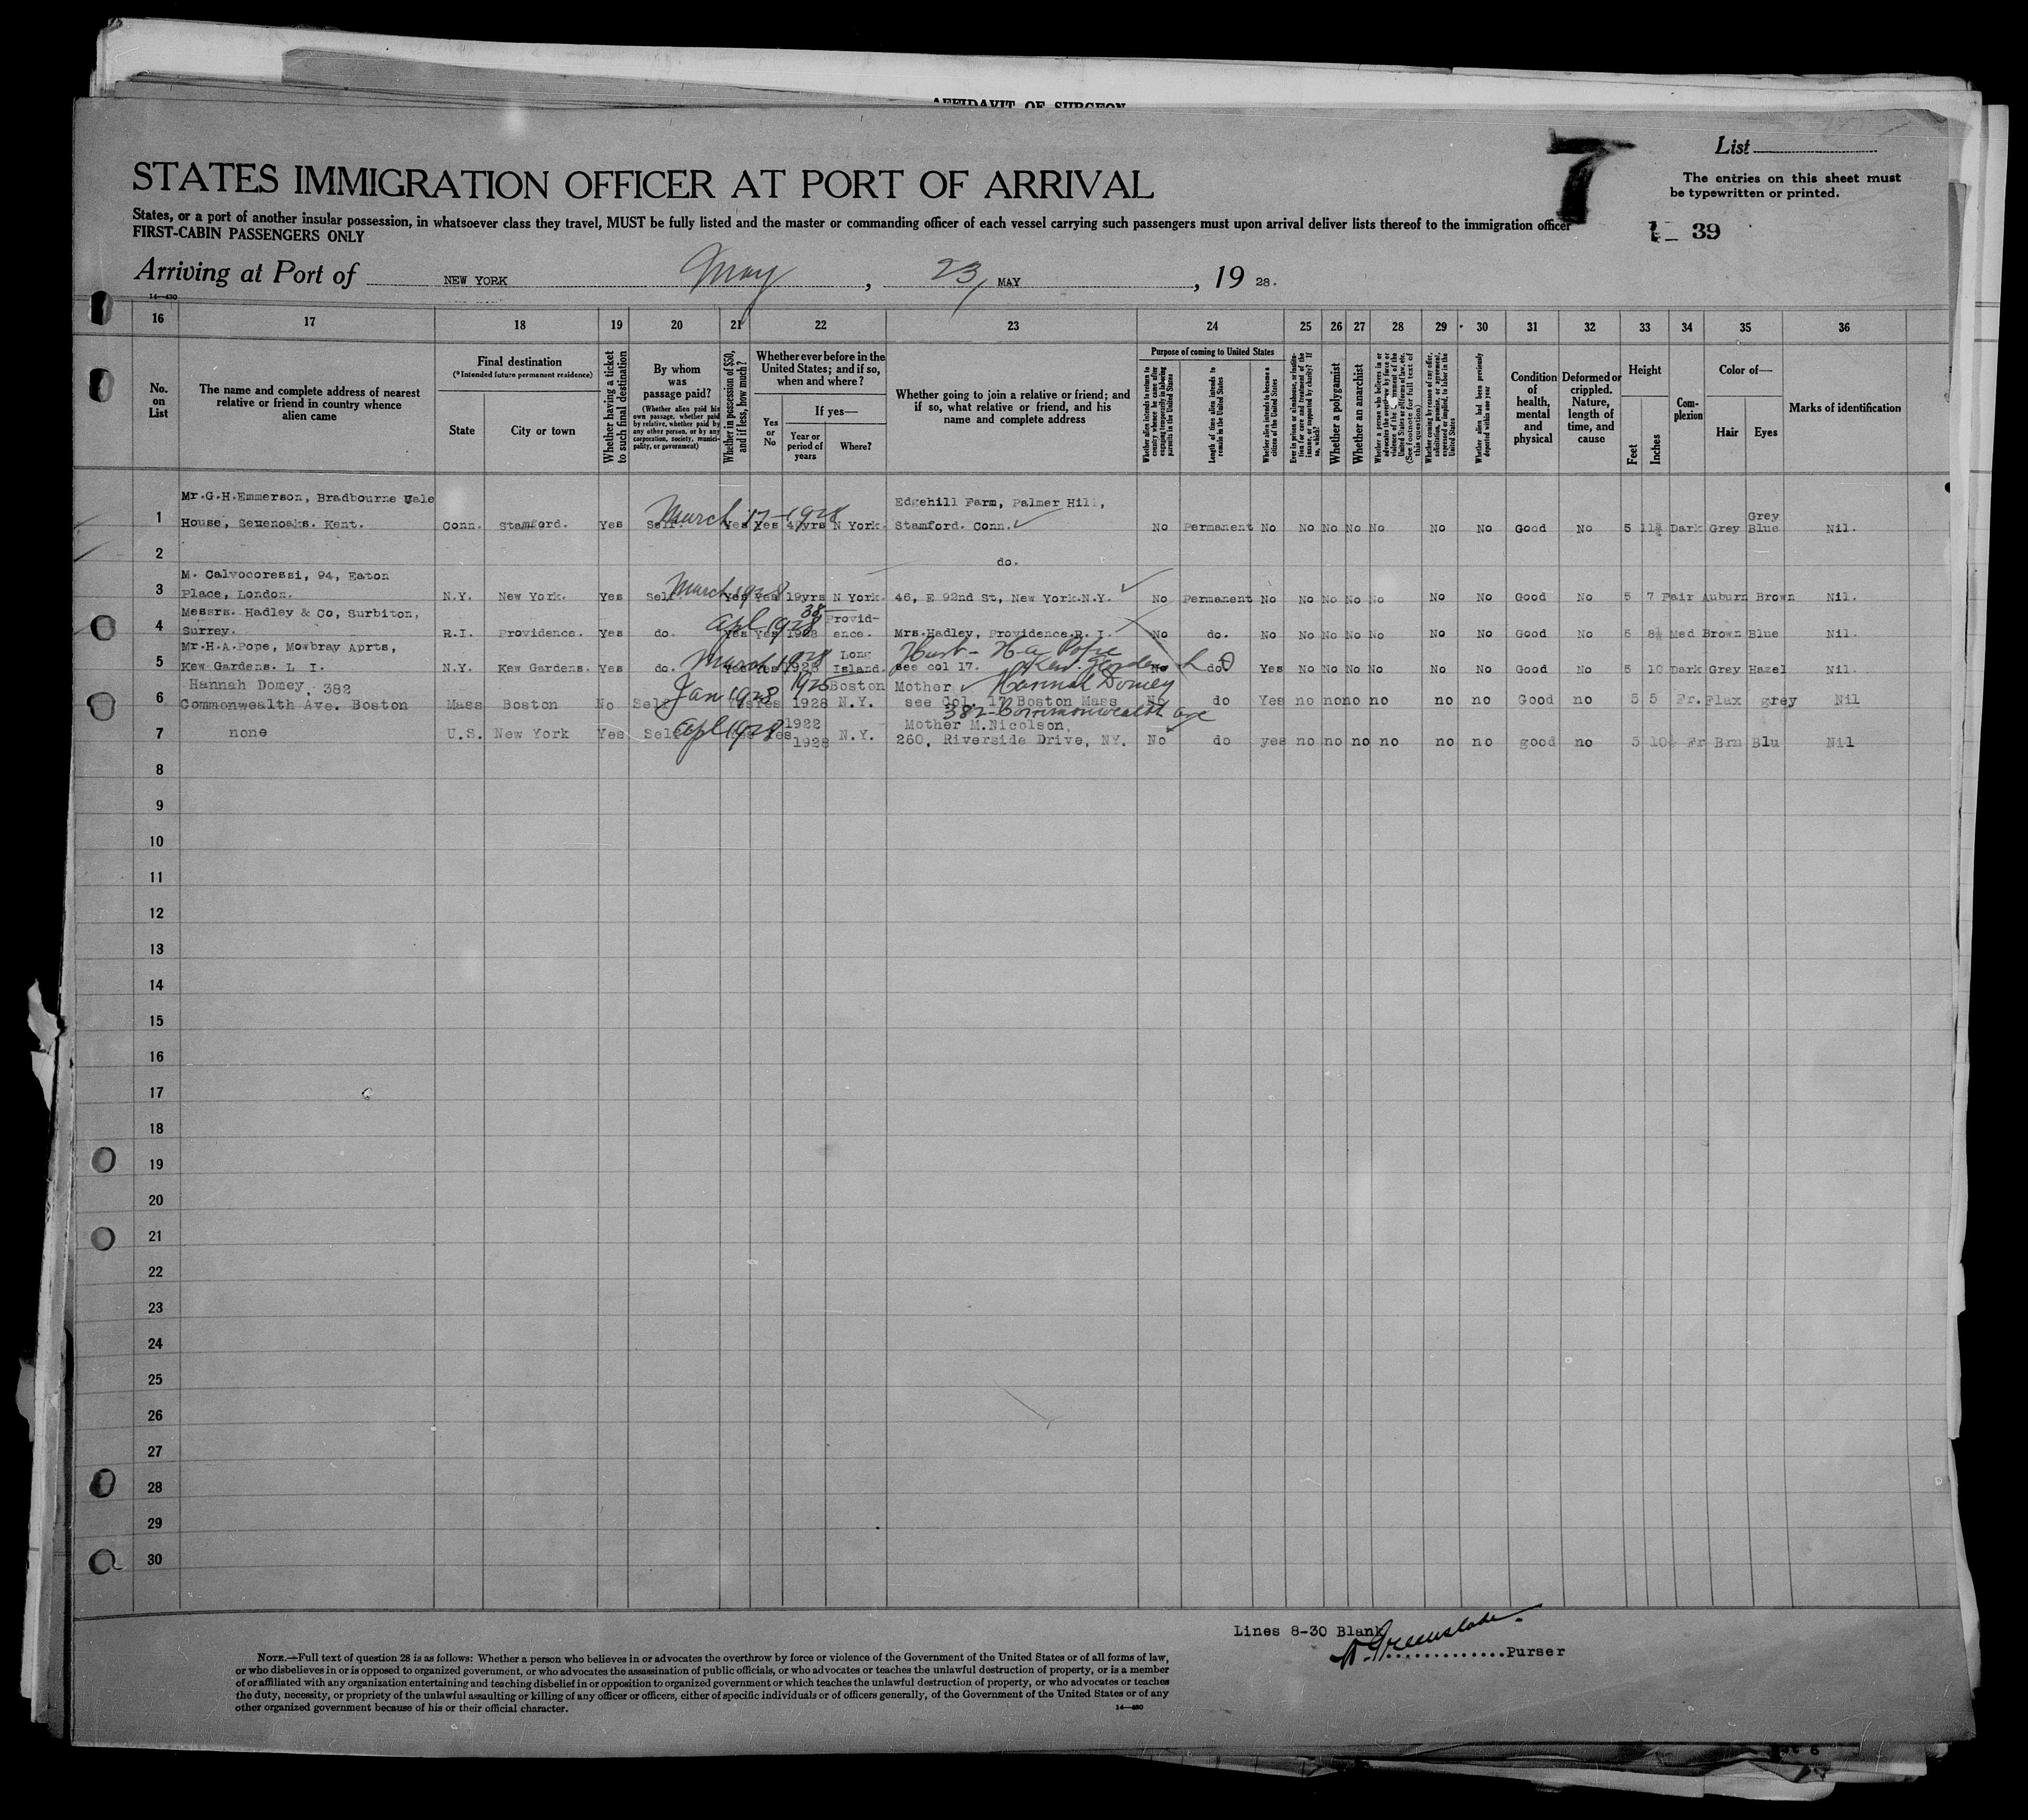 AFFIDAVIT OF SURGEON
7
List
The entries on this sheet must
be typewritten or printed.
STATES IMMIGRATION OFFICER AT PORT OF ARRIVAL
States, or a port of another insular possession, in whatsoever class they travel, MUST be fully listed and the master or commanding officer of each vessel carrying such passengers must upon arrival deliver lists thereof to the immigration officer
FIRST-CABIN PASSENGERS ONLY
39
Arriving at Port of NEW YORK May , 23, MAY , 19 28.
14—430
16 17 18 19 20 21 22 23 24 25 26 27 28 29 30 31 32 33 34 35 36
No. on List
The name and complete address of nearest relative or friend in country whence alien came
Final destination
(*Intended future permanent residence)
State City or town
Whether having a ticket to such final destination
By whom was passage paid?
(Whether alien paid his own passage, whether paid by relative, whether paid by any other person, or by any corporation, society, municipality, or government)
Whether in possession of $50, and if less, how much?
Whether ever before in the United States; and if so, when and where?
Yes or No
If yes—
Year or period of years Where?
Whether going to join a relative or friend; and if so, what relative or friend, and his name and complete address
Purpose of coming to United States
Whether alien intends to return to country whence he came after engaging temporarily in laboring pursuits in the United States
Length of time alien intends to remain in the United States
Whether alien intends to become a citizen of the United States
Ever in prison or almshouse, or institution for care and treatment of the insane, or supported by charity? If so, which?
Whether a polygamist
Whether an anarchist
(See footnote for full text of this question)
Whether coming by reason of any offer, solicitation, promise, or agreement, expressed or implied, to labor in the United States
Whether alien had been previously deported within one year
Condition of health, mental and physical
Deformed or crippled. Nature, length of time, and cause
Height
Feet Inches
Complexion
Color of—
Hair Eyes
Marks of identification
Mr.G.H.Emmerson, Bradbourne Vale Edgehill Farm, Palmer Hill,
March 17-1928 Grey
1 House, Sexenoaks. Kent. Conn. Stamford. Yes Self. Yes Yes 40yrs N York. Stamford. Conn. No Permanent No No No No No No No Good No 5 11½ Dark Grey Blue Nil.
2 do.
M. Calvocoressi, 94, Eaton
March 1928
3 Place, London. N.Y. New York. Yes Self. Yes Yes 19yrs N York. 46, E 92nd St, New York.N.Y. No Permanent No No No No No No No Good No 5 7 Fair Auburn Brown Nil.
Messrs. Hadley & Co, Surbiton, Apl 1928 38- Provid-
4 Surrey. R.I. Providence. Yes do. Yes Yes 1928 ence. Mrs.Hadley, Providence.R.I. No do. No No No No No No No Good No 5 8½ Med Brown Blue Nil.
Mr.H.A.Pope, Mowbray Aprts, March 1928 Long Husb- H a Pope
5 Kew Gardens. L I. N.Y. Kew Gardens. Yes do. Yes Yes 1928 Island. see col 17. Kew Gardens L do Yes No No No No No No Good No 5 10 Dark Grey Hazel Nil.
Hannah Domey, 382 Jan 1928 1925 Boston Mother Hannah Domey
6 Commonwealth Ave. Boston Mass Boston No Self Yes Yes 1928 N.Y. see Col. 17 Boston Mass No do Yes no no no no no no Good no 5 5 Fr. Flax grey Nil
382-Commonwealth ave
Apl 1928 1922 Mother M.Nicolson,
7 none U.S. New York Yes Self Yes Yes 1928 N.Y. 260, Riverside Drive, NY. No do yes no no no no no no good no 5 10½ Fr Brn Blu Nil
8
9
10
11
12
13
14
15
16
17
18
19
20
21
22
23
24
25
26
27
28
29
30
Lines 8-30 Blank
..............Purser
NOTE.—Full text of question 28 is as follows: Whether a person who believes in or advocates the overthrow by force or violence of the Government of the United States or of all forms of law,
or who disbelieves in or is opposed to organized government, or who advocates the assassination of public officials, or who advocates or teaches the unlawful destruction of property, or is a member
of or affiliated with any organization entertaining and teaching disbelief in or opposition to organized government or which teaches the unlawful destruction of property, or who advocates or teaches
the duty, necessity, or propriety of the unlawful assaulting or killing of any officer or officers, either of specific individuals or of officers generally, of the Government of the United States or of any
other organized government because of his or their official character.
14—430